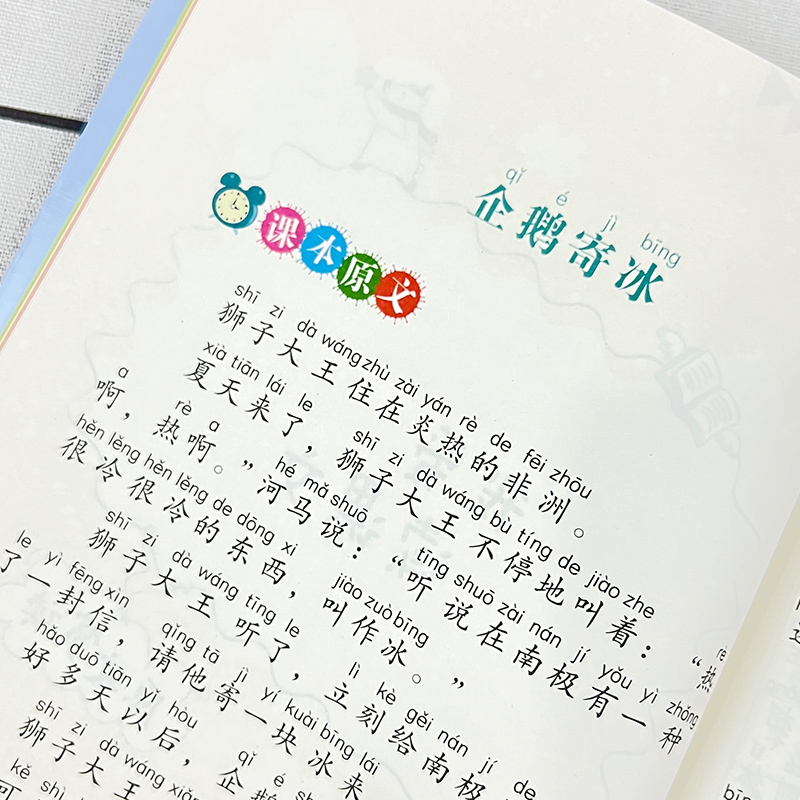 qǐ é jì bīng
企鹅寄冰
课本原文
shī zi dà wáng zhù zài yán rè de fēi zhōu
狮子大王住在炎热的非洲。
xià tiān lái le shī zi dà wáng bù tíng de jiào zhe rè
夏天来了，狮子大王不停地叫着：“热
a rè a hé mǎ shuō tīng shuō zài nán jí yǒu yì zhǒng
啊，热啊。”河马说：“听说在南极有一种
hěn lěng hěn lěng de dōng xi jiào zuò bīng
很冷很冷的东西，叫作冰。”
shī zi dà wáng tīng le lì kè gěi nán jí de
狮子大王听了，立刻给南极
le yì fēng xìn qǐng tā jì yí kuài bīng lái
了一封信，请他寄一块冰来
hǎo duō tiān yǐ hòu qǐ é
好多天以后，企鹅
shī zi dà wáng
狮子大王
kě shì
可